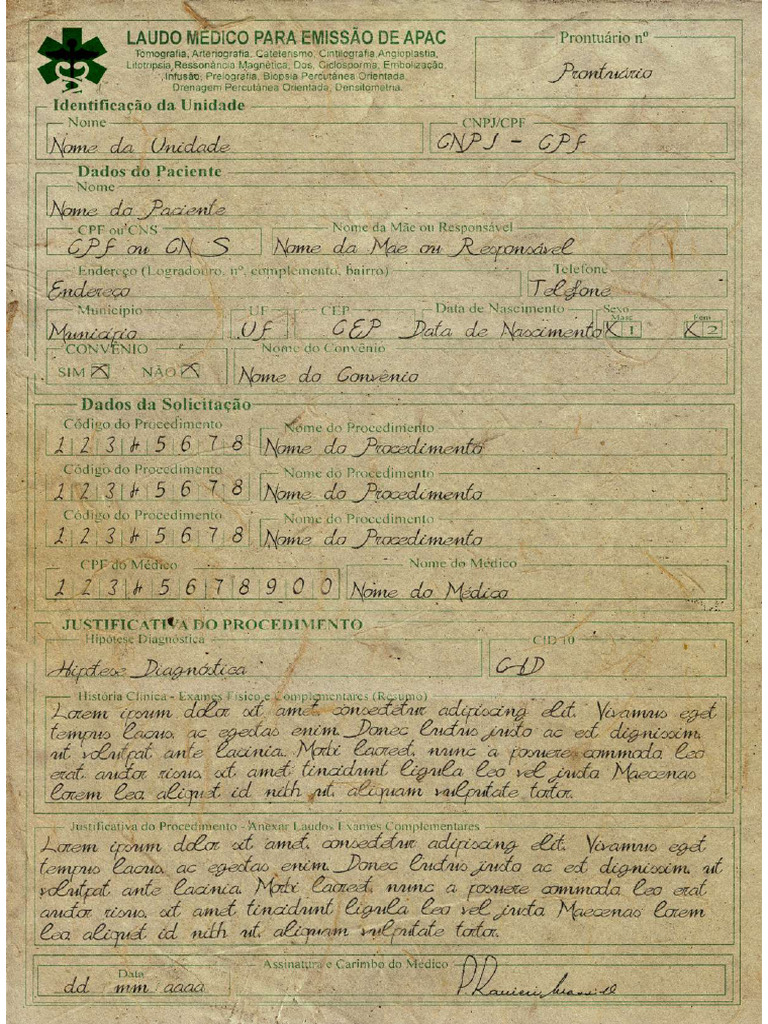 LAUDO MÉDICO PARA EMISSÃO DE APAC
Tomografia, Arteriografia, Cateterismo, Cintilografia, Angioplastia,
Litotripsia, Ressonância Magnética, Dos, Ciclosporma, Embolização,
Infusão, Prelografia, Biopsia Percutânea Orientada,
Drenagem Percutânea Orientada, Densitometria.
Prontuário nº
Prontuário
Identificação da Unidade
Nome
Nome da Unidade
CNPJ/CPF
CNPJ - CPF
Dados do Paciente
Nome
Nome do Paciente
CPF ou CNS
CPF ou CNS
Nome da Mãe ou Responsável
Nome da Mãe ou Responsável
Endereço (Logradouro, nº, complemento, bairro)
Endereço
Telefone
Telefone
Município
Município
UF
UF
CEP
CEP
Data de Nascimento
Data de Nascimento
Sexo
Masc
X 1
Fem
X 2
CONVÊNIO
SIM X NÃO X
Nome do Convênio
Nome do Convênio
Dados da Solicitação
Código do Procedimento
1 2 3 4 5 6 7 8
Nome do Procedimento
Nome do Procedimento
Código do Procedimento
1 2 3 4 5 6 7 8
Nome do Procedimento
Nome do Procedimento
Código do Procedimento
1 2 3 4 5 6 7 8
Nome do Procedimento
Nome do Procedimento
CPF do Médico
1 2 3 4 5 6 7 8 9 0 0
Nome do Médico
Nome do Médico
JUSTIFICATIVA DO PROCEDIMENTO
Hipótese Diagnóstica
Hipótese Diagnóstica
CID 10
CID
História Clínica - Exames Físico e Complementares (Resumo)
Lorem ipsum dolor sit amet, consectetur adipiscing elit. Vivamus eget
tempus lacus, ac egestas enim. Donec luctus justo ac est dignissim,
ut volutpat ante lacinia. Morbi laoreet, nunc a posuere commodo, leo
erat auctor risus, sit amet tincidunt ligula leo vel justo. Maecenas
lorem leo, aliquet id nibh ut, aliquam vulputate tortor.
Justificativa do Procedimento - Anexar Laudos Exames Complementares
Lorem ipsum dolor sit amet, consectetur adipiscing elit. Vivamus eget
tempus lacus, ac egestas enim. Donec luctus justo ac est dignissim, ut
volutpat ante lacinia. Morbi laoreet, nunc a posuere commodo, leo erat
auctor risus, sit amet tincidunt ligula leo vel justo. Maecenas lorem
leo, aliquet id nibh ut, aliquam vulputate tortor.
Data
dd mm aaaa
Assinatura e Carimbo do Médico